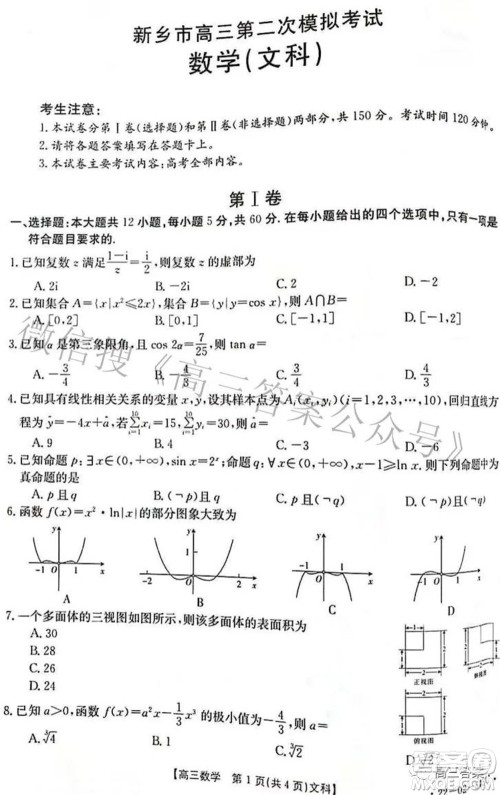 新乡市高三第二次模拟考试
数学(文科)
考生注意:
1.本试卷分第Ⅰ卷(选择题)和第Ⅱ卷(非选择题)两部分,共150分。考试时间120分钟。
2.请将各题答案填写在答题卡上。
3.本试卷主要考试内容:高考全部内容。
第Ⅰ卷
一、选择题:本大题共12小题,每小题5分,共60分.在每小题给出的四个选项中,只有一项是
符合题目要求的.
1.已知复数z满足(1-i)/z=i/2,则复数z的虚部为
A.2i B.-2i C.2 D.-2
2.已知集合A={x|x²≤2x},集合B={y|y=cos x},则A∩B=
A.[0,2] B.[0,1] C.[-1,1] D.[-1,2]
3.已知α是第三象限角,且cos 2α=7/25,则tan α=
A.-3/4 B.-4/3 C.3/4 D.4/3
4.已知具有线性相关关系的变量x,y,设其样本点为Aᵢ(xᵢ,yᵢ)(i=1,2,3,…,10),回归直线方
程为ŷ=-4x+â,若∑xᵢ=15,∑yᵢ=30,则â=
A.9 B.4 C.-3 D.-6
5.已知命题p:∃x∈(0,+∞),sin x=2ˣ;命题q:∀x∈(0,+∞),x-1≥ln x.则下列命题中为
真命题的是
A.p且q B.(¬p)且q C.p且(¬q) D.(¬p)且(¬q)
6.函数f(x)=x²·ln|x|的部分图象大致为
y y y y
-1 O 1 x -2 O 2 x 1 -1 O 1 x -1 O 1 x
A B C D
7.一个多面体的三视图如图所示,则该多面体的表面积为
A.30
B.28
C.26
D.24
正视图 侧视图
俯视图
8.已知a>0,函数f(x)=a²x-1/3x³的极小值为-4/3,则a=
A.∛4 B.1 C.∛2 D.√2
【高三数学 第1页(共4页)文科】
微信搜《高三答案公众号》
高三答案